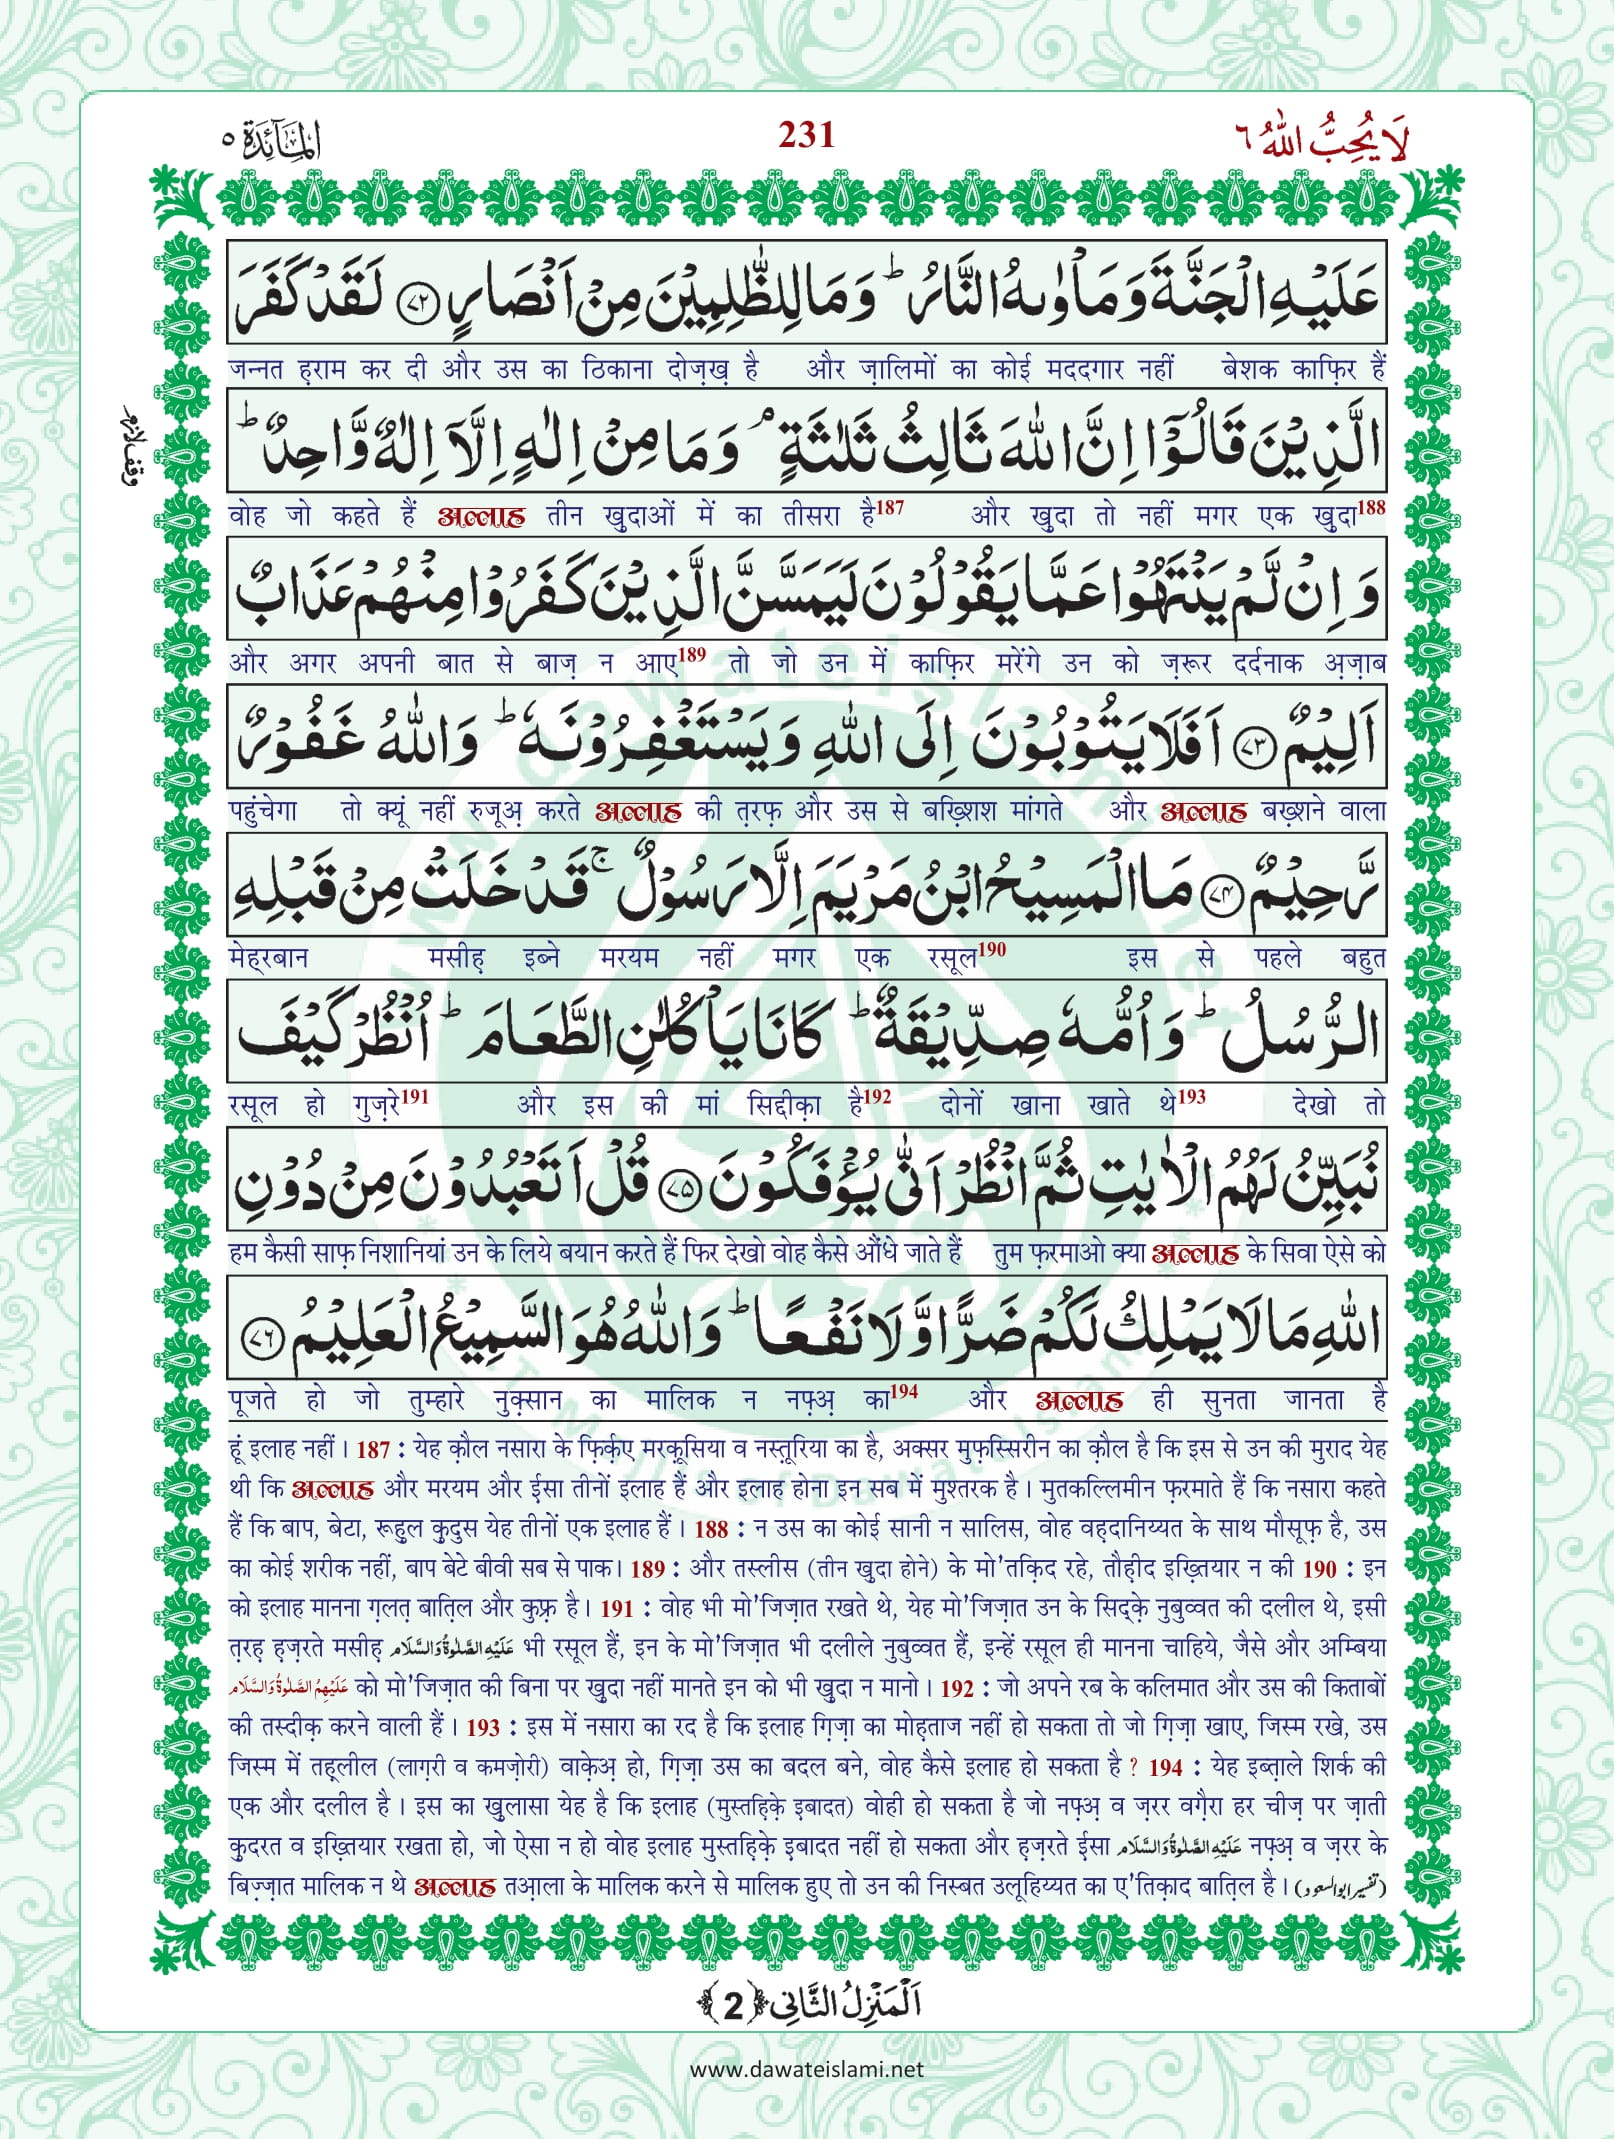 المآئدة ٥
231
لَا يُحِبُّ اللهُ ٦
عَلَيْهِ الْجَنَّةَ وَمَاْوٰىهُ النَّارُ ؕ وَمَا لِلظّٰلِمِيْنَ مِنْ اَنْصَارٍ ﴿۷۲﴾ لَقَدْ كَفَرَ
जन्नत ह़राम कर दी और उस का ठिकाना दोज़ख़ है और ज़ालिमों का कोई मददगार नहीं बेशक काफ़िर हैं
الَّذِيْنَ قَالُوْۤا اِنَّ اللهَ ثَالِثُ ثَلٰثَةٍ ۘ وَمَا مِنْ اِلٰهٍ اِلَّاۤ اِلٰهٌ وَّاحِدٌ ؕ
وقف لازم
वोह जो कहते हैं अल्लाह तीन ख़ुदाओं में का तीसरा है187 और ख़ुदा तो नहीं मगर एक ख़ुदा188
وَ اِنْ لَّمْ يَنْتَهُوْا عَمَّا يَقُوْلُوْنَ لَيَمَسَّنَّ الَّذِيْنَ كَفَرُوْا مِنْهُمْ عَذَابٌ
और अगर अपनी बात से बाज़ न आए189 तो जो उन में काफ़िर मरेंगे उन को ज़रूर दर्दनाक अ़ज़ाब
اَلِيْمٌ ﴿۷۳﴾ اَفَلَا يَتُوْبُوْنَ اِلَى اللهِ وَيَسْتَغْفِرُوْنَهٗ ؕ وَاللهُ غَفُوْرٌ
पहुंचेगा तो क्यूं नहीं रुजूअ़ करते अल्लाह की त़रफ़ और उस से बख़्शिश मांगते और अल्लाह बख़्शने वाला
رَّحِيْمٌ ﴿۷۴﴾ مَا الْمَسِيْحُ ابْنُ مَرْيَمَ اِلَّا رَسُوْلٌ ۚ قَدْ خَلَتْ مِنْ قَبْلِهِ
मेह्रबान मसीह़ इब्ने मरयम नहीं मगर एक रसूल190 इस से पहले बहुत
الرُّسُلُ ؕ وَ اُمُّهٗ صِدِّيْقَةٌ ؕ كَانَا يَاْكُلٰنِ الطَّعَامَ ؕ اُنْظُرْ كَيْفَ
रसूल हो गुज़रे191 और इस की मां सिद्दीक़ा है192 दोनों खाना खाते थे193 देखो तो
نُبَيِّنُ لَهُمُ الْاٰيٰتِ ثُمَّ انْظُرْ اَنّٰى يُؤْفَكُوْنَ ﴿۷۵﴾ قُلْ اَتَعْبُدُوْنَ مِنْ دُوْنِ
हम कैसी साफ़ निशानियां उन के लिये बयान करते हैं फिर देखो वोह कैसे औंधे जाते हैं तुम फ़रमाओ क्या अल्लाह के सिवा ऐसे को
اللهِ مَا لَا يَمْلِكُ لَكُمْ ضَرًّا وَّ لَا نَفْعًا ؕ وَاللهُ هُوَ السَّمِيْعُ الْعَلِيْمُ ﴿۷۶﴾
पूजते हो जो तुम्हारे नुक़्सान का मालिक न नफ़्अ़ का194 और अल्लाह ही सुनता जानता है
हूं इलाह नहीं। 187 : येह क़ौल नसारा के फ़िर्क़ए मरक़ूसिया व नस्त़ूरिया का है, अक्सर मुफ़स्सिरीन का क़ौल है कि इस से उन की मुराद येह
थी कि अल्लाह और मरयम और ईसा तीनों इलाह हैं और इलाह होना इन सब में मुश्तरक है। मुतकल्लिमीन फ़रमाते हैं कि नसारा कहते
हैं कि बाप, बेटा, रूहुल क़ुदुस येह तीनों एक इलाह हैं। 188 : न उस का कोई सानी न सालिस, वोह वह़दानिय्यत के साथ मौसूफ़ है, उस
का कोई शरीक नहीं, बाप बेटे बीवी सब से पाक। 189 : और तस्लीस (तीन ख़ुदा होने) के मो'तक़िद रहे, तौह़ीद इख़्तियार न की 190 : इन
को इलाह मानना ग़लत़ बात़िल और कुफ़्र है। 191 : वोह भी मो'जिज़ात रखते थे, येह मो'जिज़ात उन के सिद्क़े नुबुव्वत की दलील थे, इसी
त़रह़ ह़ज़रते मसीह़ عَلَيْهِ الصَّلٰوةُ وَالسَّلَام भी रसूल हैं, इन के मो'जिज़ात भी दलीले नुबुव्वत हैं, इन्हें रसूल ही मानना चाहिये, जैसे और अम्बिया
عَلَيْهِمُ الصَّلٰوةُ وَالسَّلَام को मो'जिज़ात की बिना पर ख़ुदा नहीं मानते इन को भी ख़ुदा न मानो। 192 : जो अपने रब के कलिमात और उस की किताबों
की तस्दीक़ करने वाली हैं। 193 : इस में नसारा का रद है कि इलाह ग़िज़ा का मोह़ताज नहीं हो सकता तो जो ग़िज़ा खाए, जिस्म रखे, उस
जिस्म में तह़्लील (लाग़री व कमज़ोरी) वाक़ेअ़ हो, ग़िज़ा उस का बदल बने, वोह कैसे इलाह हो सकता है ? 194 : येह इब्त़ाले शिर्क की
एक और दलील है। इस का ख़ुलासा येह है कि इलाह (मुस्तह़िक़े इबादत) वोही हो सकता है जो नफ़्अ़ व ज़रर वग़ैरा हर चीज़ पर ज़ाती
क़ुदरत व इख़्तियार रखता हो, जो ऐसा न हो वोह इलाह मुस्तह़िक़े इबादत नहीं हो सकता और ह़ज़रते ईसा عَلَيْهِ الصَّلٰوةُ وَالسَّلَام नफ़्अ़ व ज़रर के
बिज़्ज़ात मालिक न थे अल्लाह तआ़ला के मालिक करने से मालिक हुए तो उन की निस्बत उलूहिय्यत का ए'तिक़ाद बात़िल है। (تفسیر ابوالسعود)
اَلْمَنْزِلُ الثَّانِي ﴿2﴾
www.dawateislami.net